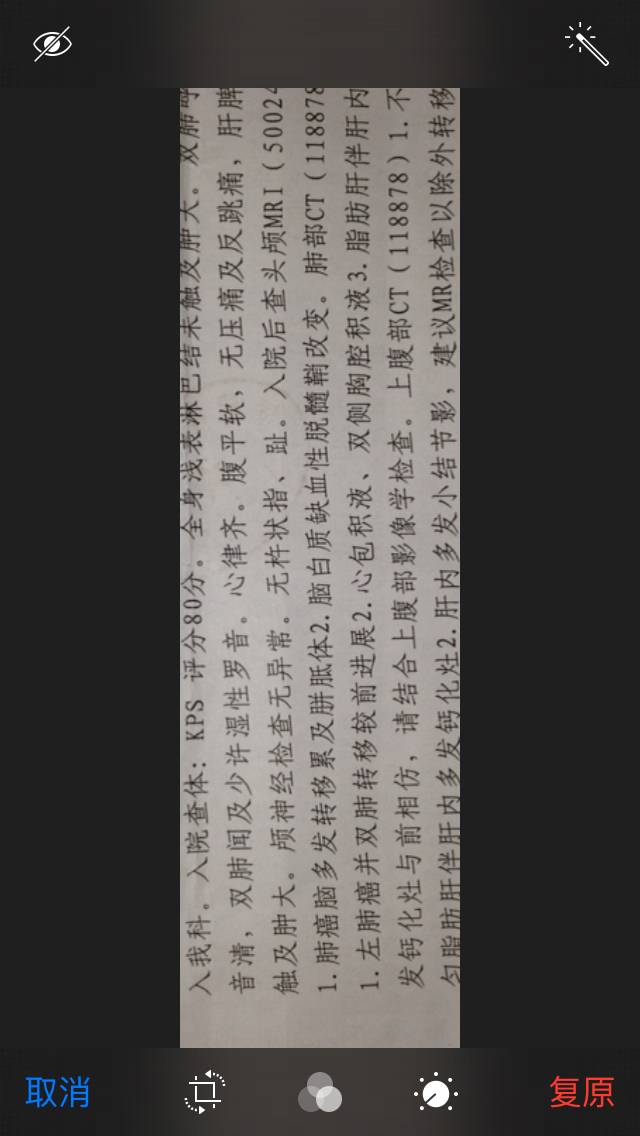 入我科。入院查体：KPS 评分80分。全身浅表淋巴结未触及肿大。双肺呼
音清，双肺闻及少许湿性罗音。心律齐。腹平软，无压痛及反跳痛，肝脾
触及肿大。颅神经检查无异常。无杵状指、趾。入院后查头颅MRI（50024
1.肺癌脑多发转移累及胼胝体2.脑白质缺血性脱髓鞘改变。肺部CT（118878
1.左肺癌并双肺转移较前进展2.心包积液、双侧胸腔积液3.脂肪肝伴肝内
发钙化灶与前相仿，请结合上腹部影像学检查。上腹部CT（118878）1.不
匀脂肪肝伴肝内多发钙化灶2.肝内多发小结节影，建议MR检查以除外转移
取消
复原